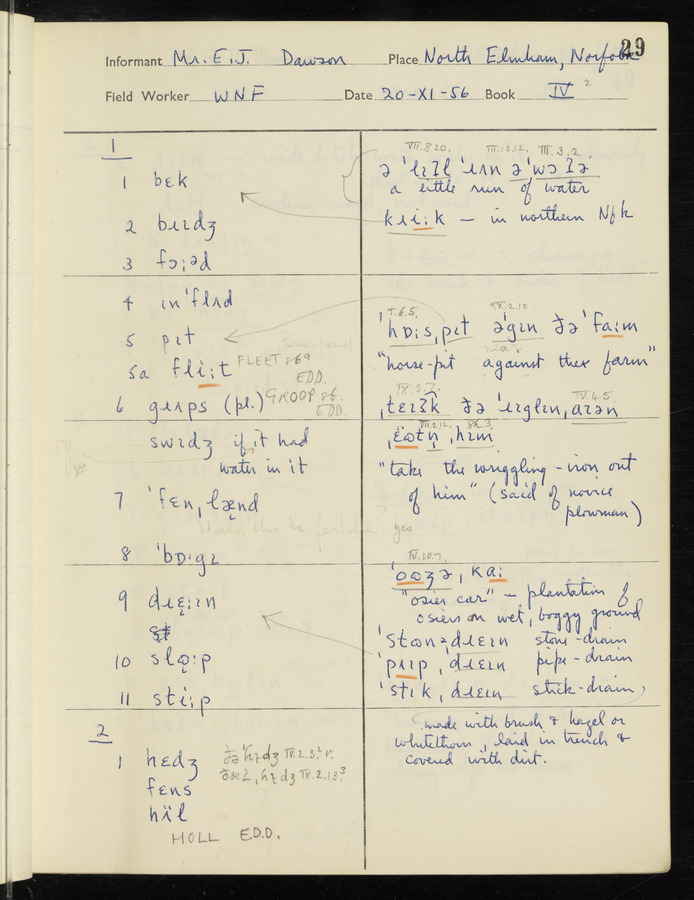 29
Informant Mr. E. J. Dawson Place North Elmham, Norfolk
Field Worker WNF Date 20-XI-56 Book IV 2
1
1 bɛk
2 bɹɪdʒ
3 fɔ:əd
4 ɪn'flʌd
5 pɪt
5a fli:t FLEET sb9 EDD.
6 gɹʌps (pl.) GROOP sb. EDD.
swɪdʒ if it had
water in it
7 'fɛnˌlænd
Would this be fertile? yes
8 'bɒ·gɪ
9 dɹɛ:ɪn
10 slo̜:p
11 sti:p
2
1 hɛdʒ ðə 'hɛdʒ IV.2.3.² r.
ˌhɛdʒ IV.2.13.³
fɛns
hïl
HOLL E.D.D.
VII.8.20. VII.13.12. III.3.2.
ə 'lɪʔl 'ɹʌn ə 'wɔʔə
a little run of water
kɹi:k – in northern Nfk
I.6.5. IX.2.10.
'hɒ:sˌpɪt ə'gɪn ðə 'fa:m
near
"horse-pit against the farm"
IX.3.7. IV.4.5.
ˌtɛɪʔk ðə 'ɹɪglɪnˌaɪən
VII.2.12.
ˌhɪm
"take the wriggling-iron out
of him" (said of novice
plowman)
IV.10.7.
'oʊʒəˌka:
"osier car" – plantation of
osiers on wet, boggy ground
'stʊnˌdɹɛɪn stone-drain
'pɪɪpˌdɹɛɪn pipe-drain
'stɪkˌdɹɛɪn stick-drain,
made with brush & hazel or
whitethorn, laid in trench &
covered with dirt.